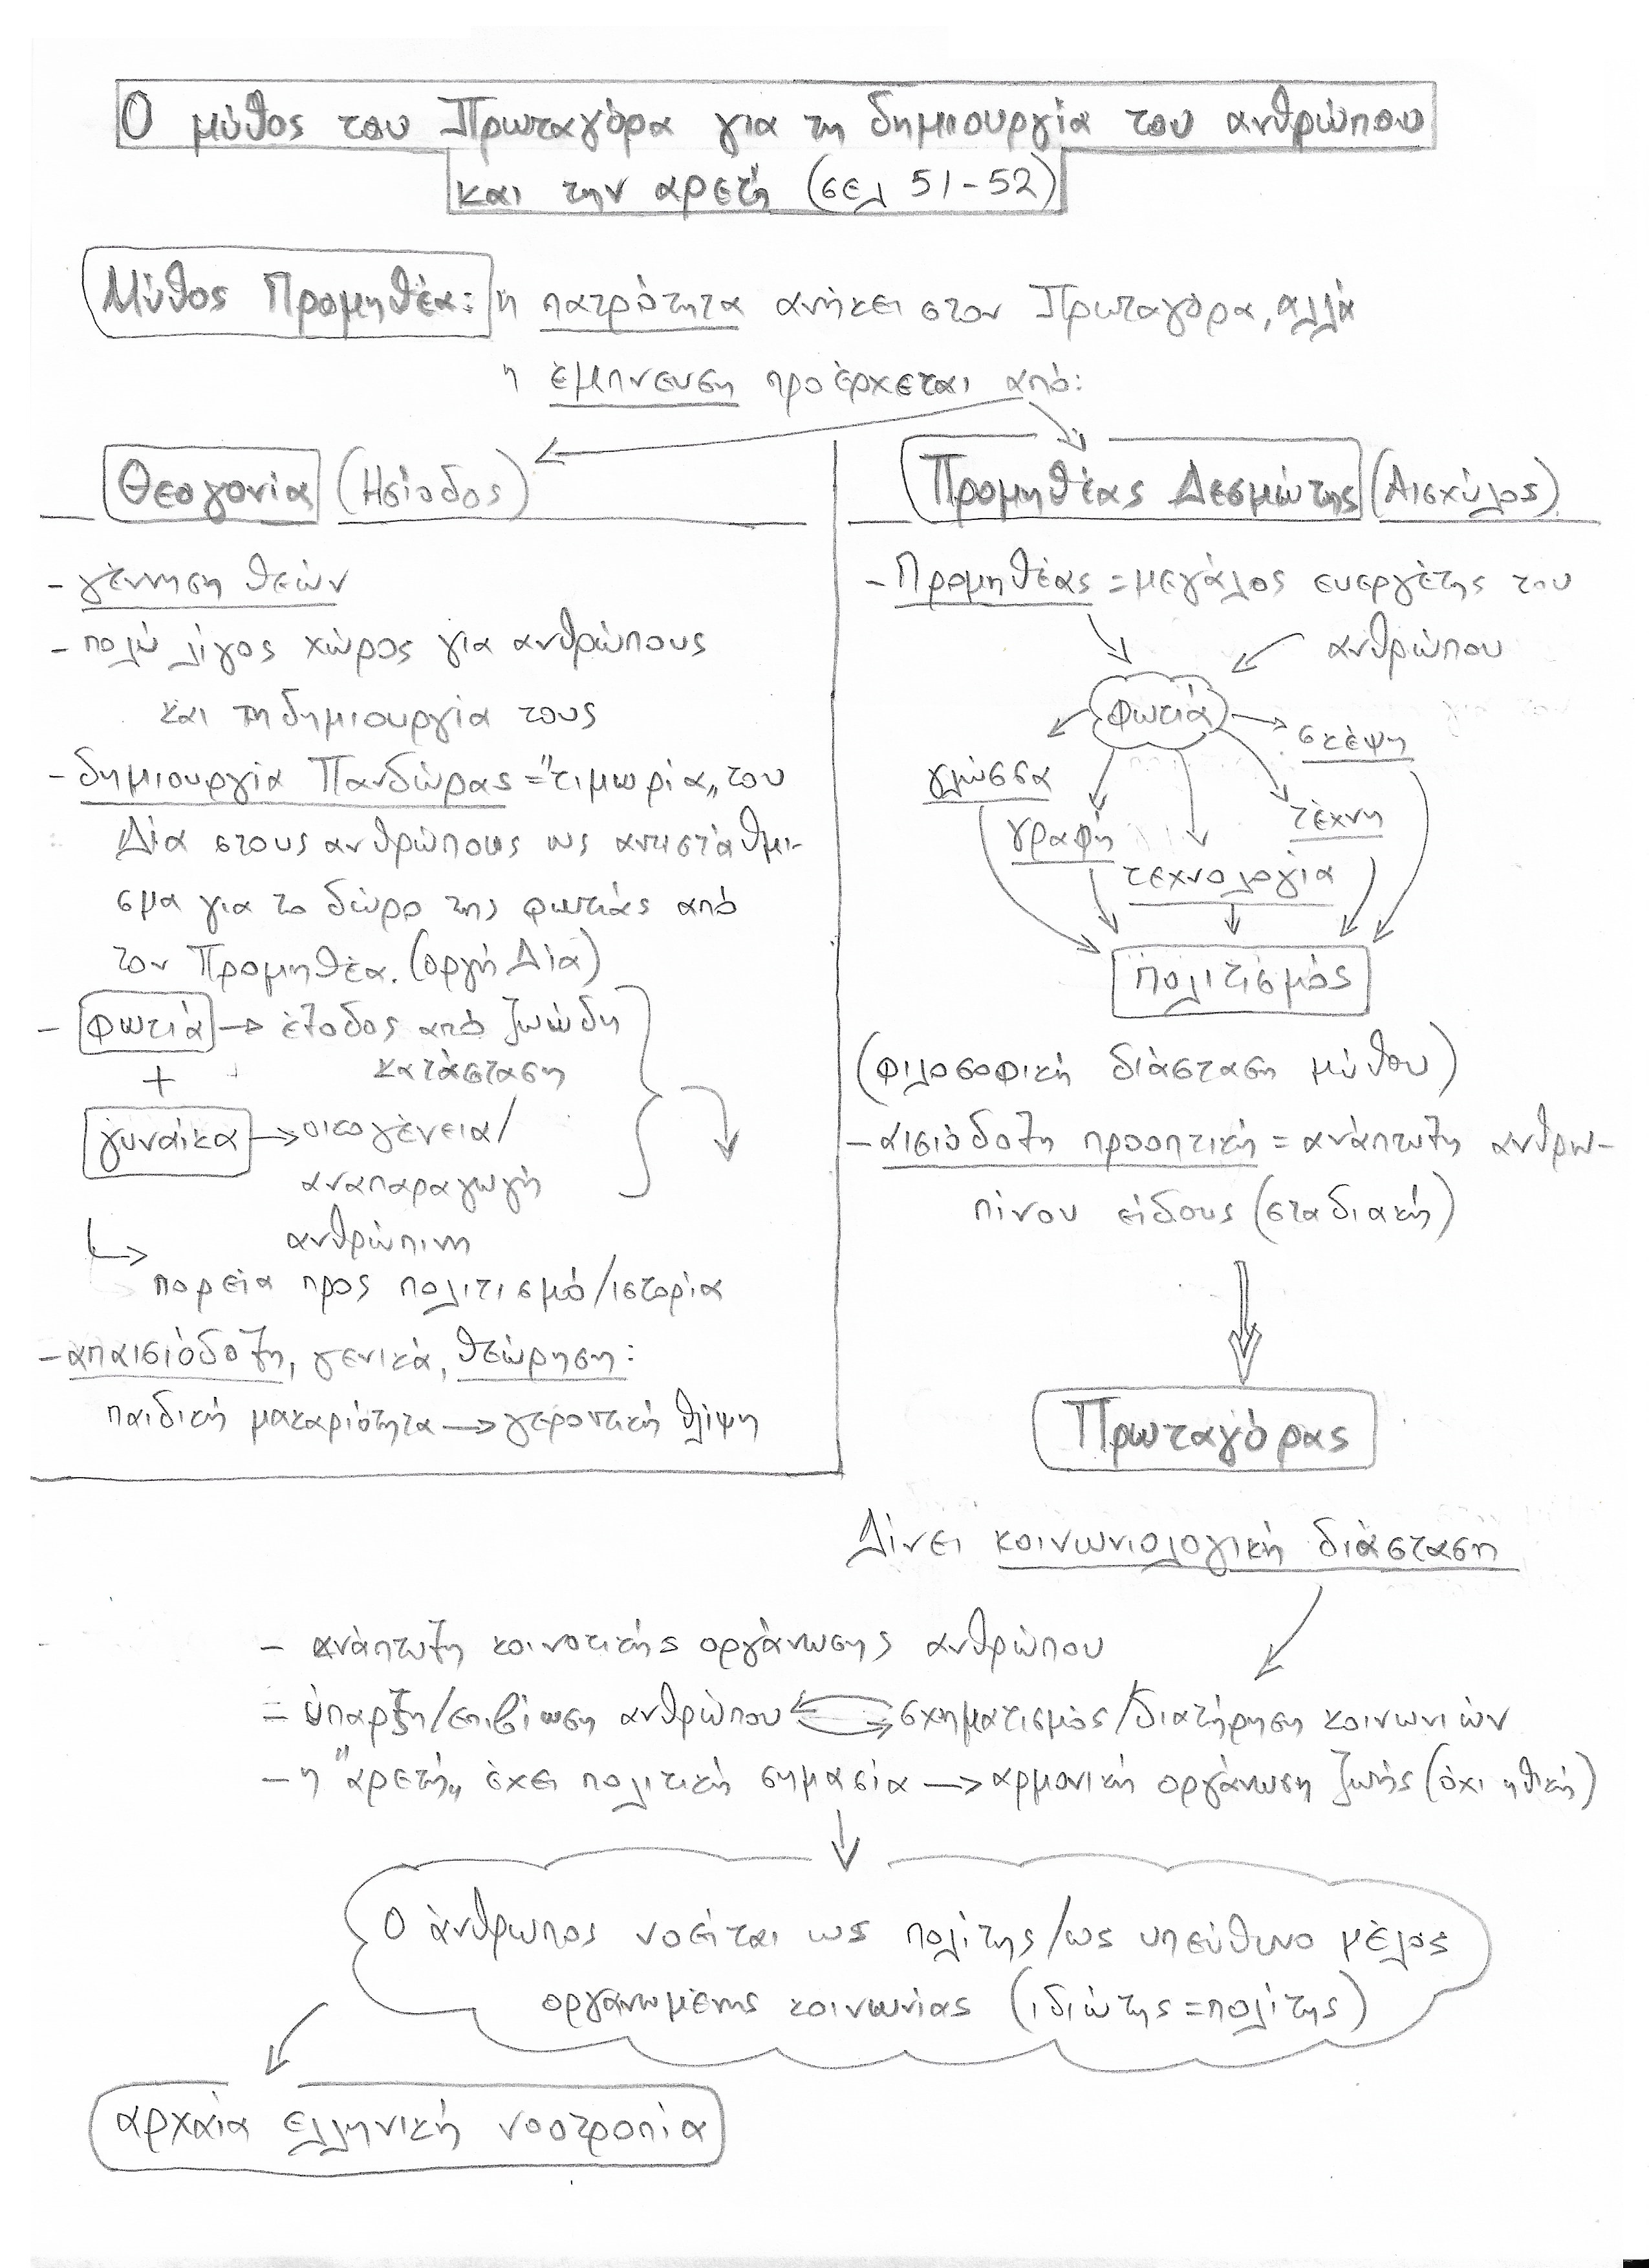 Ο μύθος του Πρωταγόρα για τη δημιουργία του ανθρώπου
και την αρετή (σελ 51-52)
Μύθος Προμηθέα: η πατρότητα ανήκει στον Πρωταγόρα, αλλά
η έμπνευση προέρχεται από:
Θεογονία (Ησίοδος)
- γέννηση θεών
- πολύ λίγος χώρος για ανθρώπους
και τη δημιουργία τους
- δημιουργία Πανδώρας = "τιμωρία" του
Δία στους ανθρώπους ως αντιστάθμι-
σμα για το δώρο της φωτιάς από
τον Προμηθέα. (οργή Δία)
- φωτιά → έξοδος από ζωώδη
κατάσταση
+
γυναίκα → οικογένεια/
αναπαραγωγή
ανθρώπινη
πορεία προς πολιτισμό/ιστορία
- απαισιόδοξη, γενικά, θεώρηση:
παιδική μακαριότητα → γεροντική θλίψη
Προμηθέας Δεσμώτης (Αισχύλος)
- Προμηθέας = μεγάλος ευεργέτης του
ανθρώπου
φωτιά
σκέψη
γλώσσα
τέχνη
γραφή
τεχνολογία
πολιτισμός
(φιλοσοφική διάσταση μύθου)
- αισιόδοξη προοπτική = ανάπτυξη ανθρω-
πίνου είδους (σταδιακή)
Πρωταγόρας
Δίνει κοινωνιολογική διάσταση
- ανάπτυξη κοινοτικής οργάνωσης ανθρώπου
= ύπαρξη/επιβίωση ανθρώπου ⇄ σχηματισμός/διατήρηση κοινωνιών
- η "αρετή" έχει πολιτική σημασία → αρμονική οργάνωση ζωής (όχι ηθική)
Ο άνθρωπος νοείται ως πολίτης/ως υπεύθυνο μέλος
οργανωμένης κοινωνίας (ιδιώτης = πολίτης)
αρχαία ελληνική νοοτροπία